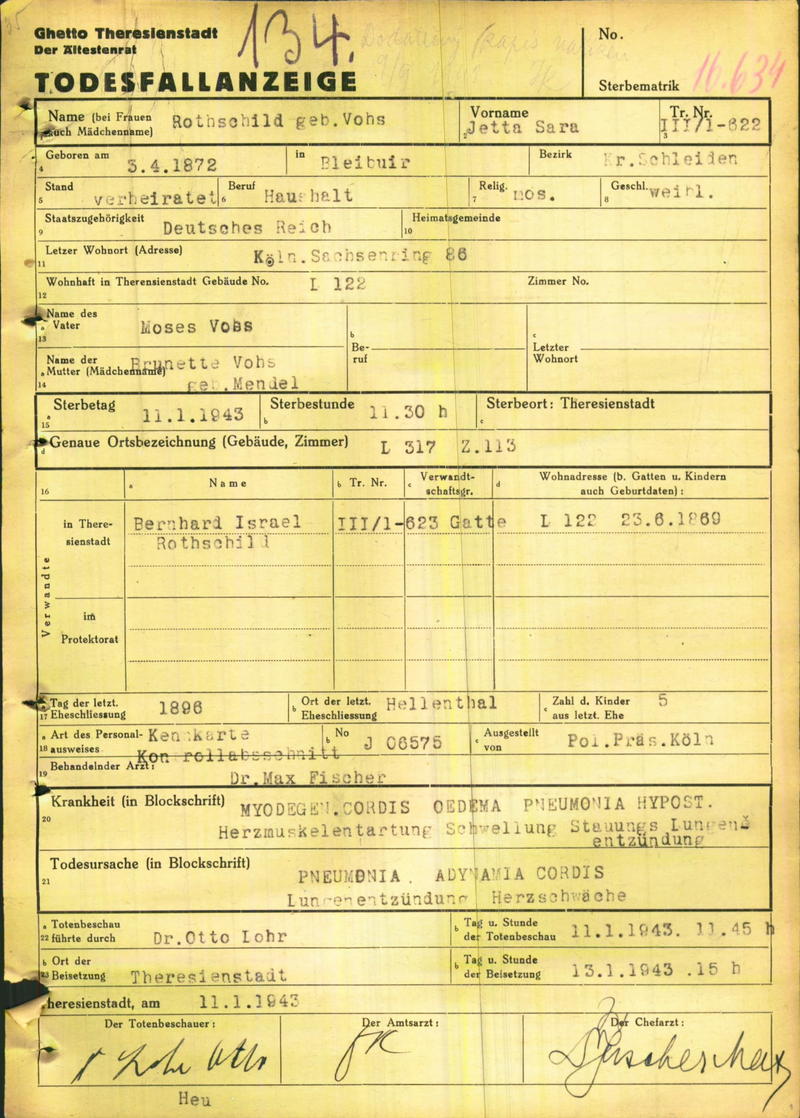 Ghetto Theresienstadt
Der Ältestenrat
134.
No.
TODESFALLANZEIGE
Sterbematrik 16.634
Name (bei Frauen auch Mädchenname) Rothschild geb.Vohs
Vorname Jetta Sara
Tr. Nr. III/1-622
Geboren am 3.4.1872 in Bleibuir Bezirk Kr.Schleiden
Stand verheiratet Beruf Haushalt Relig. mos. Geschl. weibl.
Staatszugehörigkeit Deutsches Reich Heimatsgemeinde
Letzer Wohnort (Adresse) Köln.Sachsenring 86
Wohnhaft in Theresienstadt Gebäude No. L 122 Zimmer No.
Name des Vater Moses Vohs
Beruf
Letzter Wohnort
Name der Mutter (Mädchenname) Brunette Vohs
geb.Mendel
Sterbetag 11.1.1943 Sterbestunde 11.30 h Sterbeort: Theresienstadt
Genaue Ortsbezeichnung (Gebäude, Zimmer) L 317 Z.113
16 a Name b Tr. Nr. c Verwandtschaftsgr. d Wohnadresse (b. Gatten u. Kindern auch Geburtdaten):
Verwandte
in Theresienstadt Bernhard Israel III/1-623 Gatte L 122 23.6.1869
Rothschild
im Protektorat
Tag der letzt. Eheschliessung 1896 Ort der letzt. Eheschliessung Hellenthal Zahl d. Kinder aus letzt. Ehe 5
Art des Personalausweises Kennkarte No J 06575 Ausgestellt von Pol.Präs.Köln
Kontrollabsschnitt
Behandelnder Arzt: Dr.Max Fischer
Krankheit (in Blockschrift) MYODEGEN.CORDIS OEDEMA PNEUMONIA HYPOST.
Herzmuskelentartung Schwellung Stauungs Lungen=
entzündung
Todesursache (in Blockschrift) PNEUMONIA. ADYNAMIA CORDIS
Lungenentzündung Herzschwäche
Totenbeschau führte durch Dr.Otto Lohr Tag u. Stunde der Totenbeschau 11.1.1943. 11.45 h
Ort der Beisetzung Theresienstadt Tag u. Stunde der Beisetzung 13.1.1943 .15 h
Theresienstadt, am 11.1.1943
Der Totenbeschauer: Der Amtsarzt: Der Chefarzt:
Heu